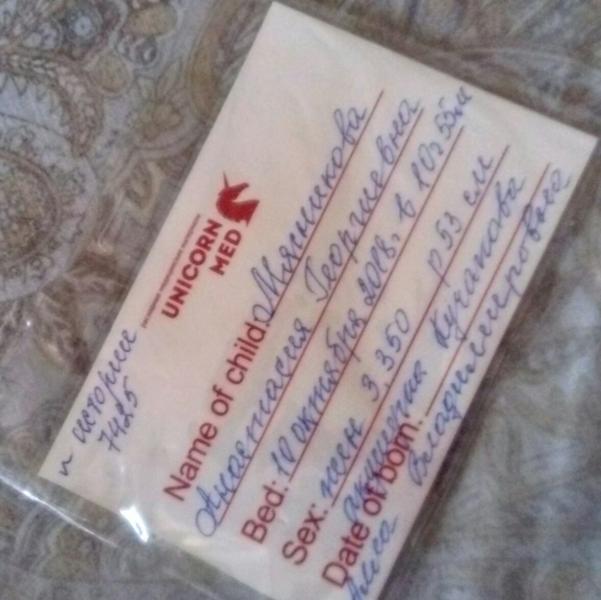 UNICORN
MED
n истории
7425
Name of child: Мясникова
Анастасия Георгиевна
Bed: 10 октября 2018г в 10ч 55м
Sex: жен 3.350 р 53 см
акушерка Кучакова
Date of born:
Алла Владимировна